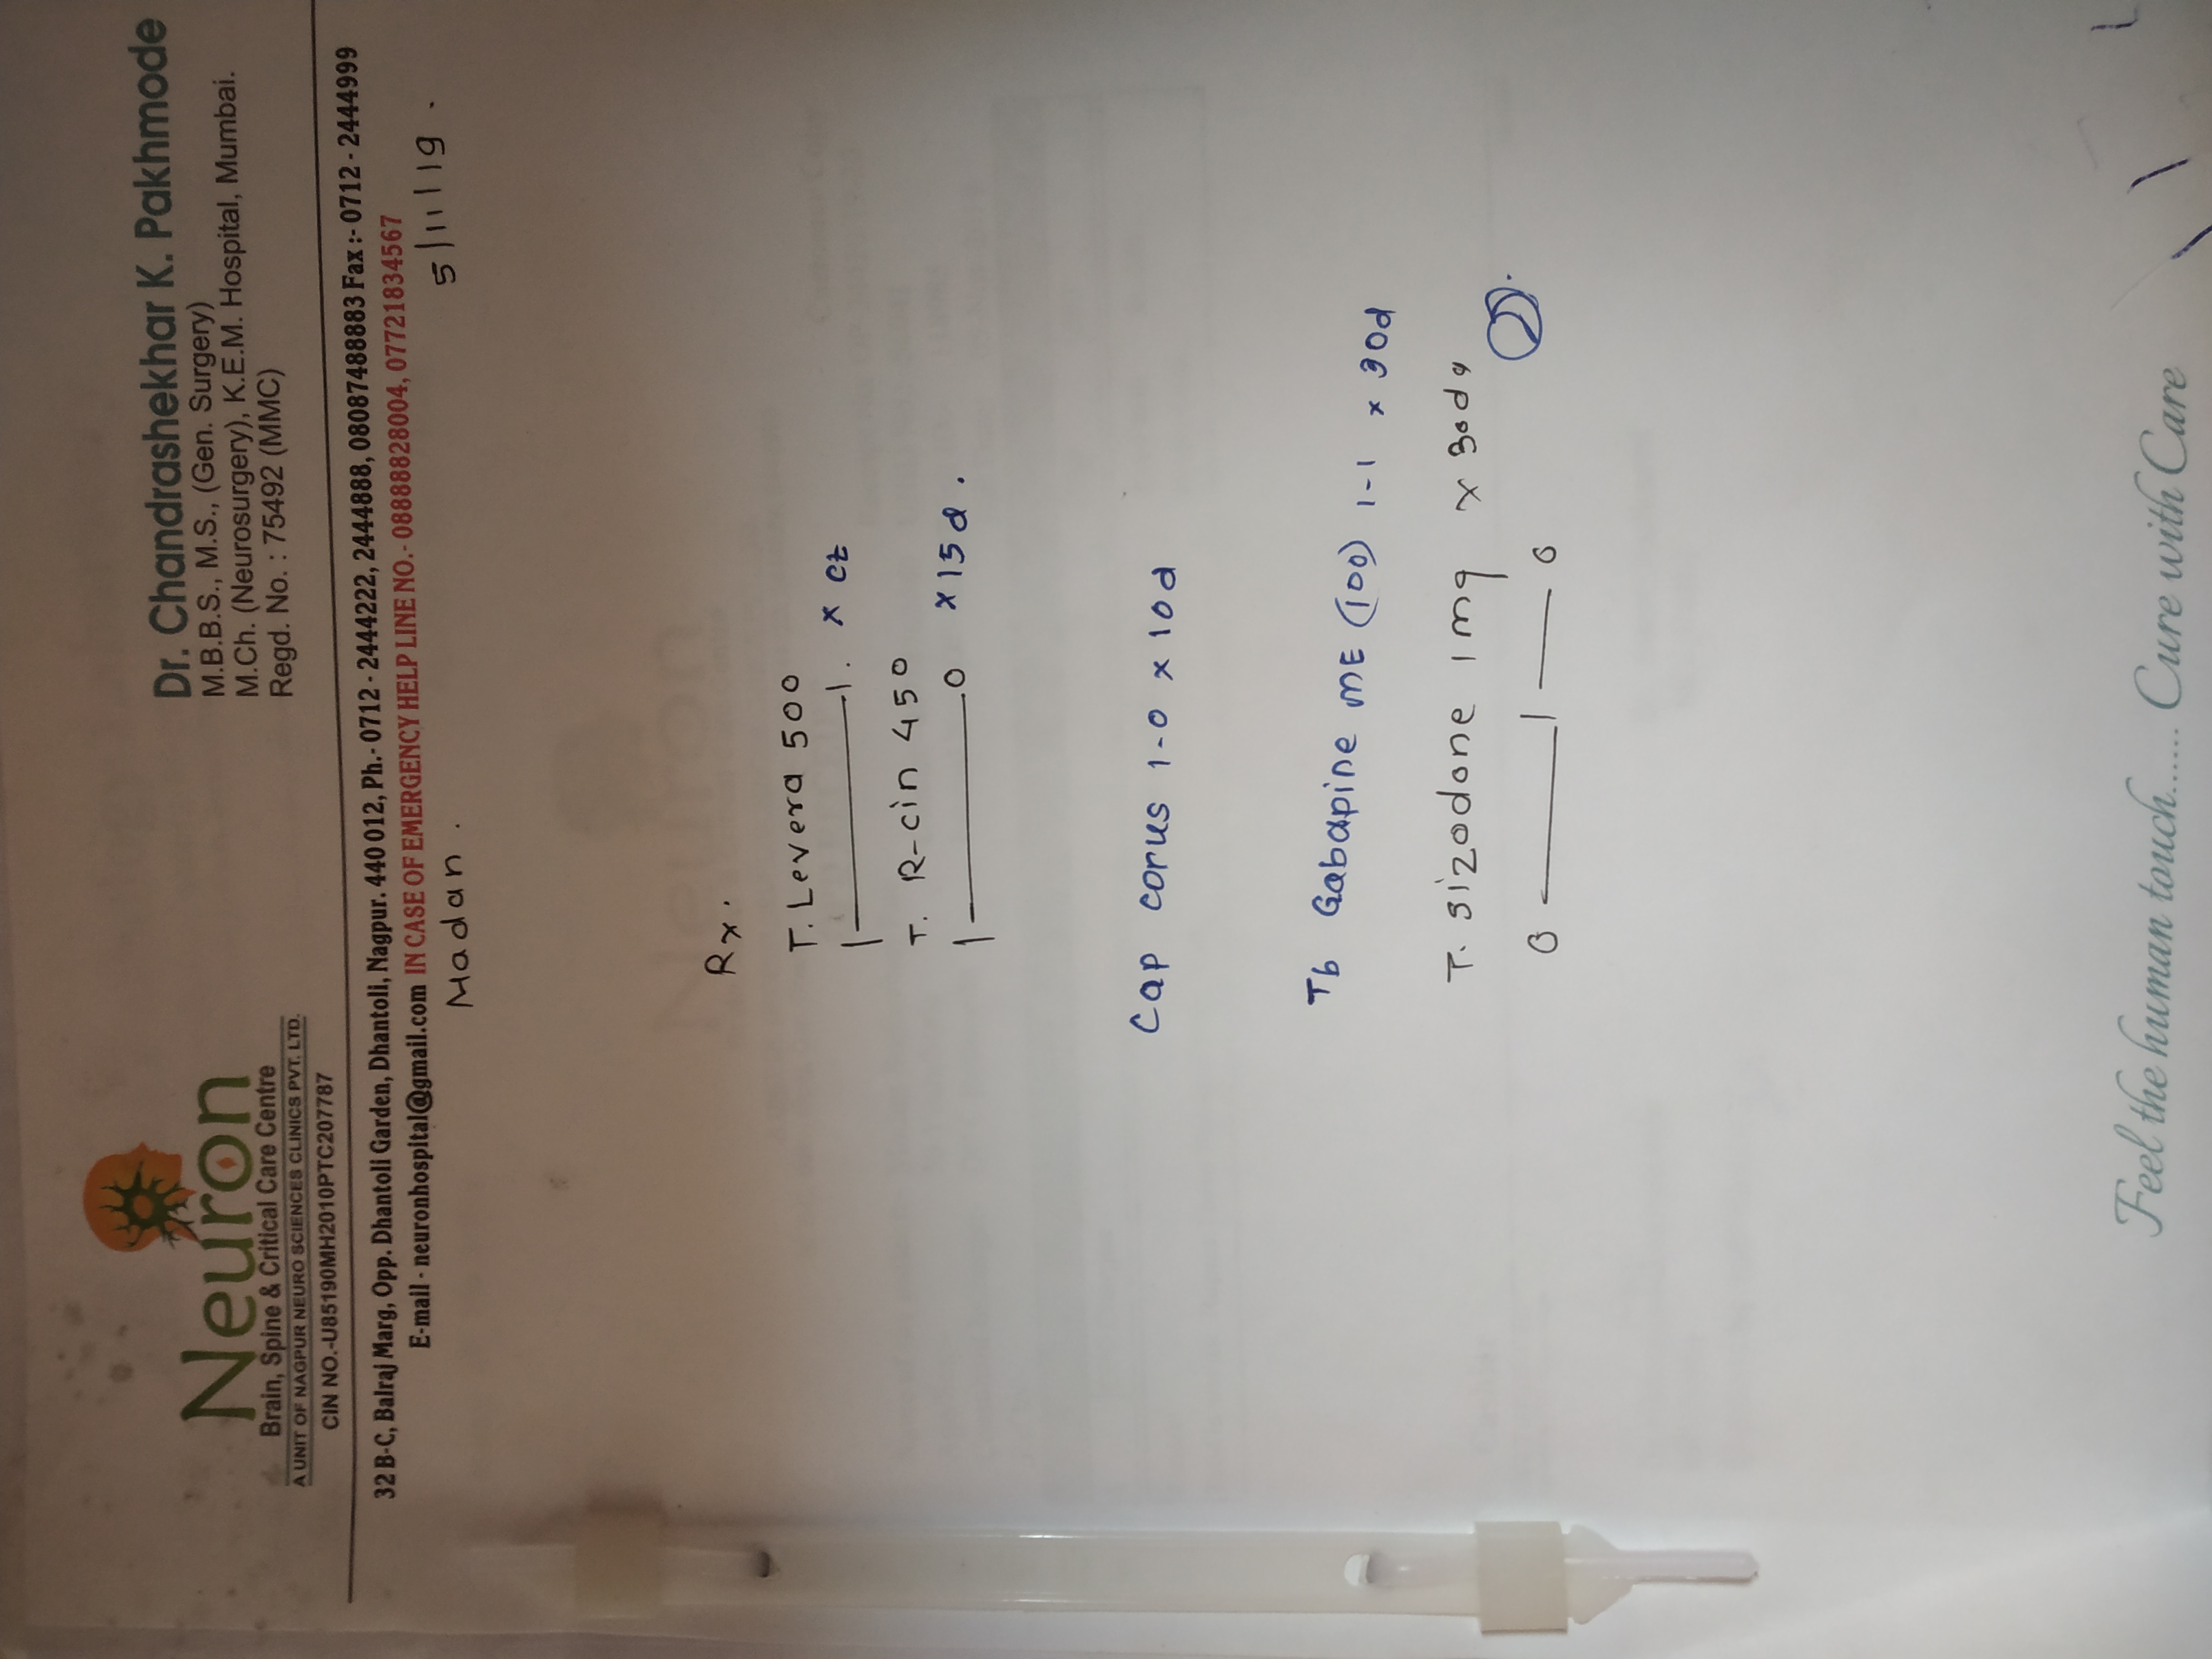 Neuron
Brain, Spine & Critical Care Centre
A UNIT OF NAGPUR NEURO SCIENCES CLINICS PVT. LTD.
CIN NO.-U85190MH2010PTC207787
Dr. Chandrashekhar K. Pakhmode
M.B.B.S., M.S., (Gen. Surgery)
M.Ch. (Neurosurgery), K.E.M. Hospital, Mumbai.
Regd. No. : 75492 (MMC)
32 B-C, Balraj Marg, Opp. Dhantoli Garden, Dhantoli, Nagpur. 440 012, Ph.- 0712 - 2444222, 2444888, 08087488883 Fax :- 0712 - 2444999
E-mail - neuronhospital@gmail.com IN CASE OF EMERGENCY HELP LINE NO.- 08888828004, 07721834567
Madan. 5/11/19.
Rx.
T. Levera 500
1——1. x ct
T. R-cin 450
1——0 x 15d.
Cap corus 1-0 x 10d
Tb Gabapine ME (100) 1-1 x 30d
T. sizodone 1 mg x 30dy
0——1——0
Feel the human touch..... Cure with Care